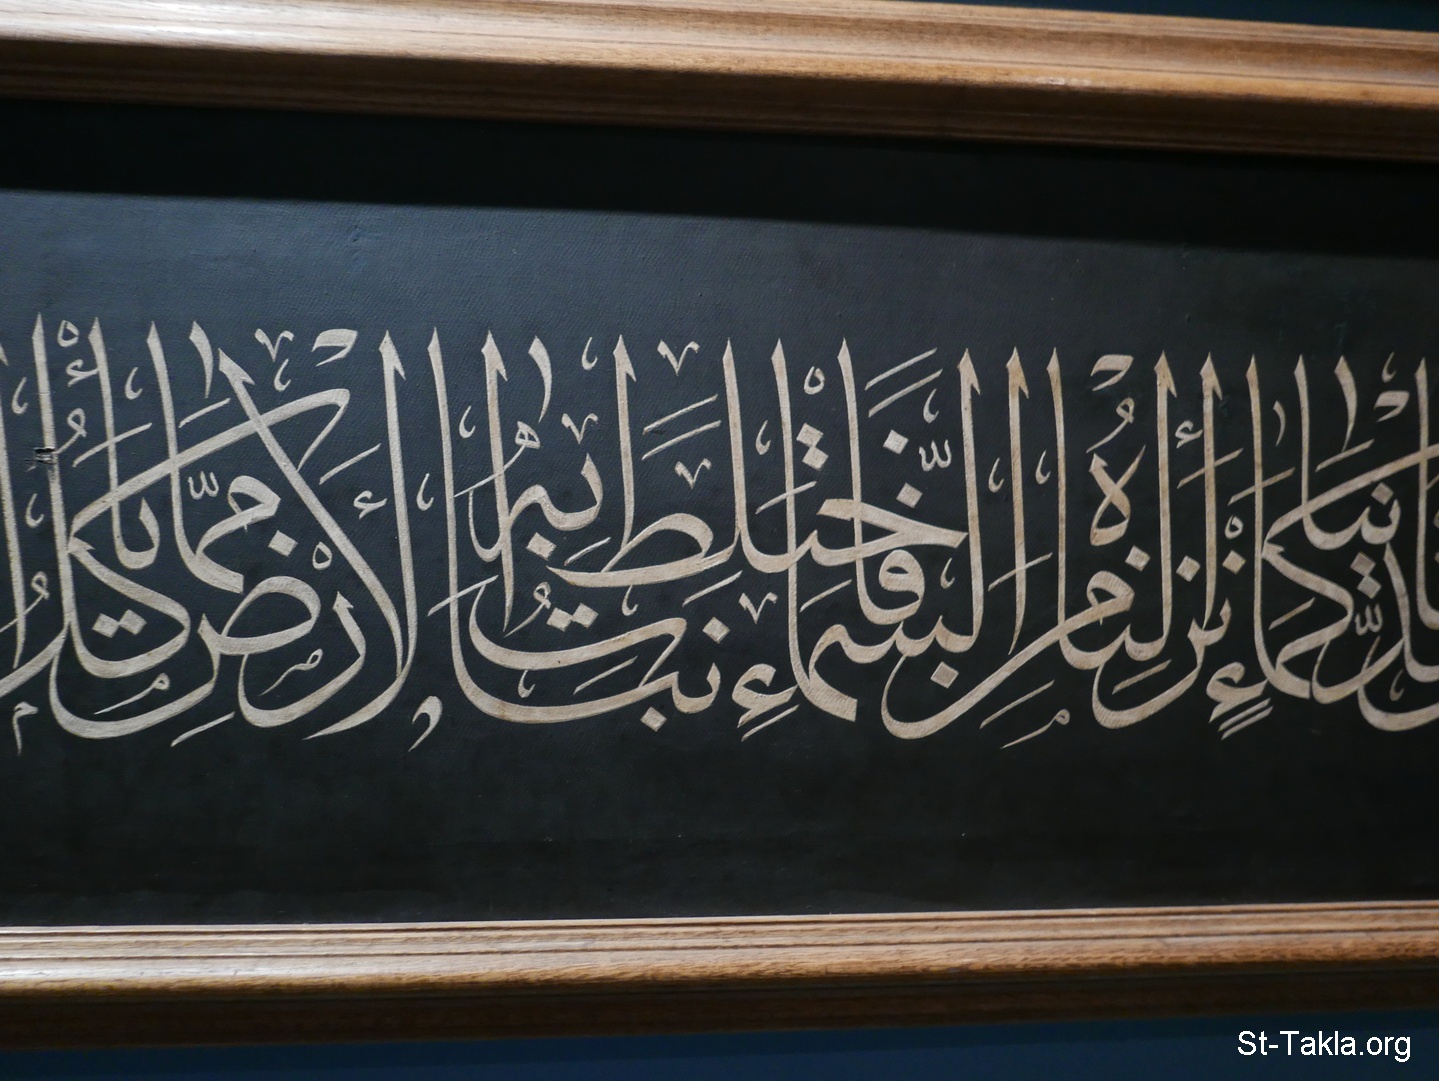 الدنيا كماء أنزلناه من السماء فاختلط به نبات الأرض مما يأكل
St-Takla.org